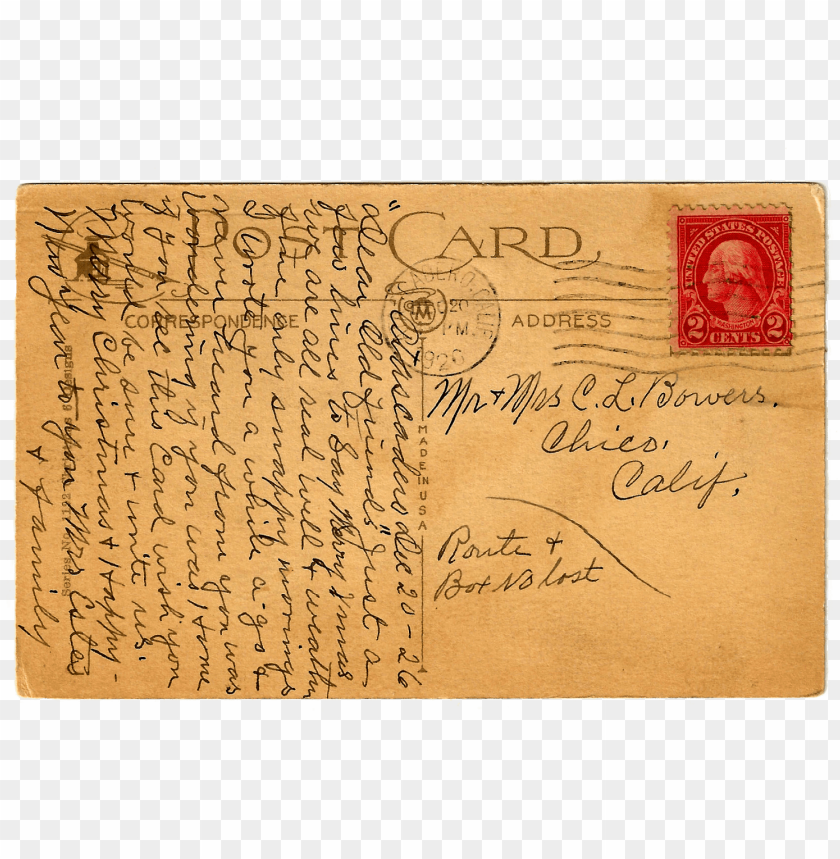 POST CARD
CORRESPONDENCE
ADDRESS
MADE IN USA
Series No.
Designs
CALIF
20
PM
1926
M
UNITED STATES POSTAGE
WASHINGTON
2 CENTS 2
Mr + Mrs C. L. Bowers.
Chico,
Calif.
Route +
Box No lost
Dec 20-26
"Dear Old Friends" Just a
few lines to Say Merry Xmas
we are all real well + weather
fine only snappy mornings
I wrote you a while a-go +
never heard from you was
wondering if you was home
if you get this Card wish you
would be sure + write us.
Merry Christmas + Happy-
New year to you Mrs Estes
+ family